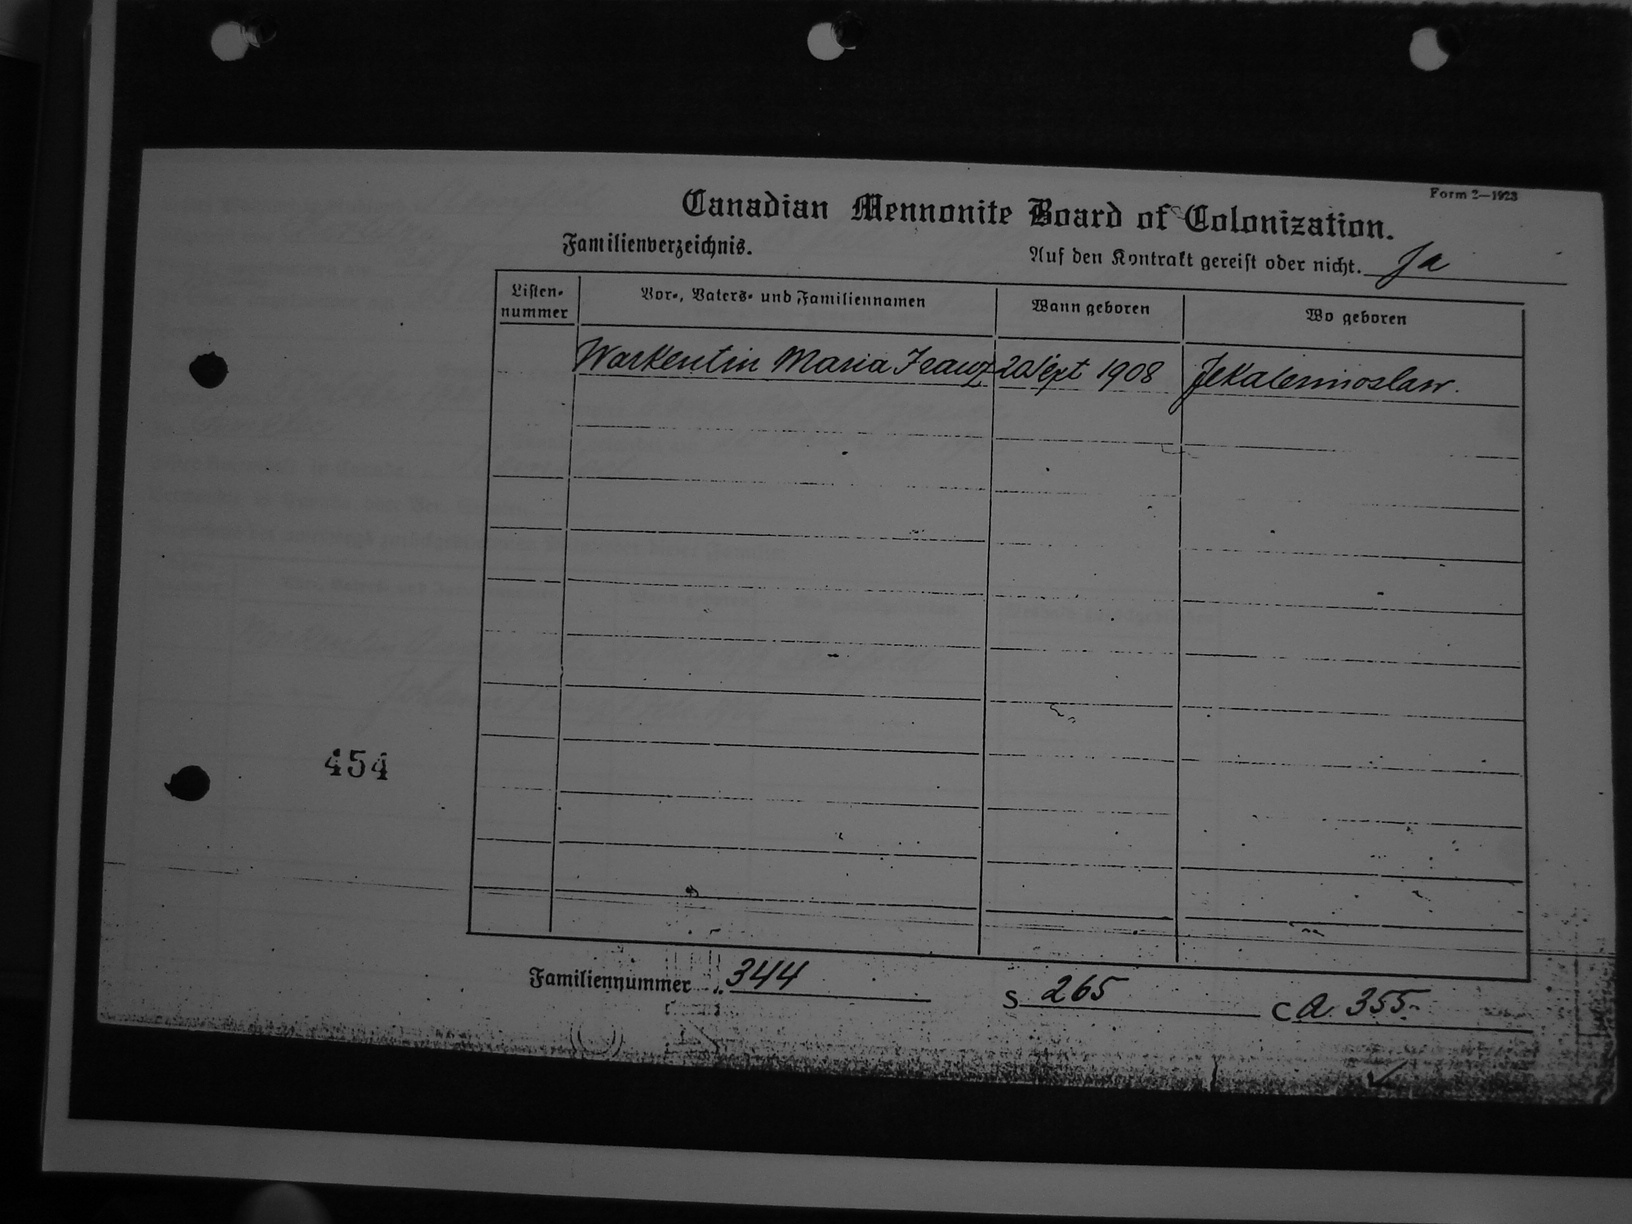 Form 2—1923
Canadian Mennonite Board of Colonization.
Familienverzeichnis.
Auf den Kontrakt gereist oder nicht. Ja
Listen-
nummer
Vor-, Vaters- und Familiennamen
Wann geboren
Wo geboren
Warkentin Maria Franz 20 Sept 1908 Jekaterinoslaw.
454
Familiennummer 344
S 265
C A 355.